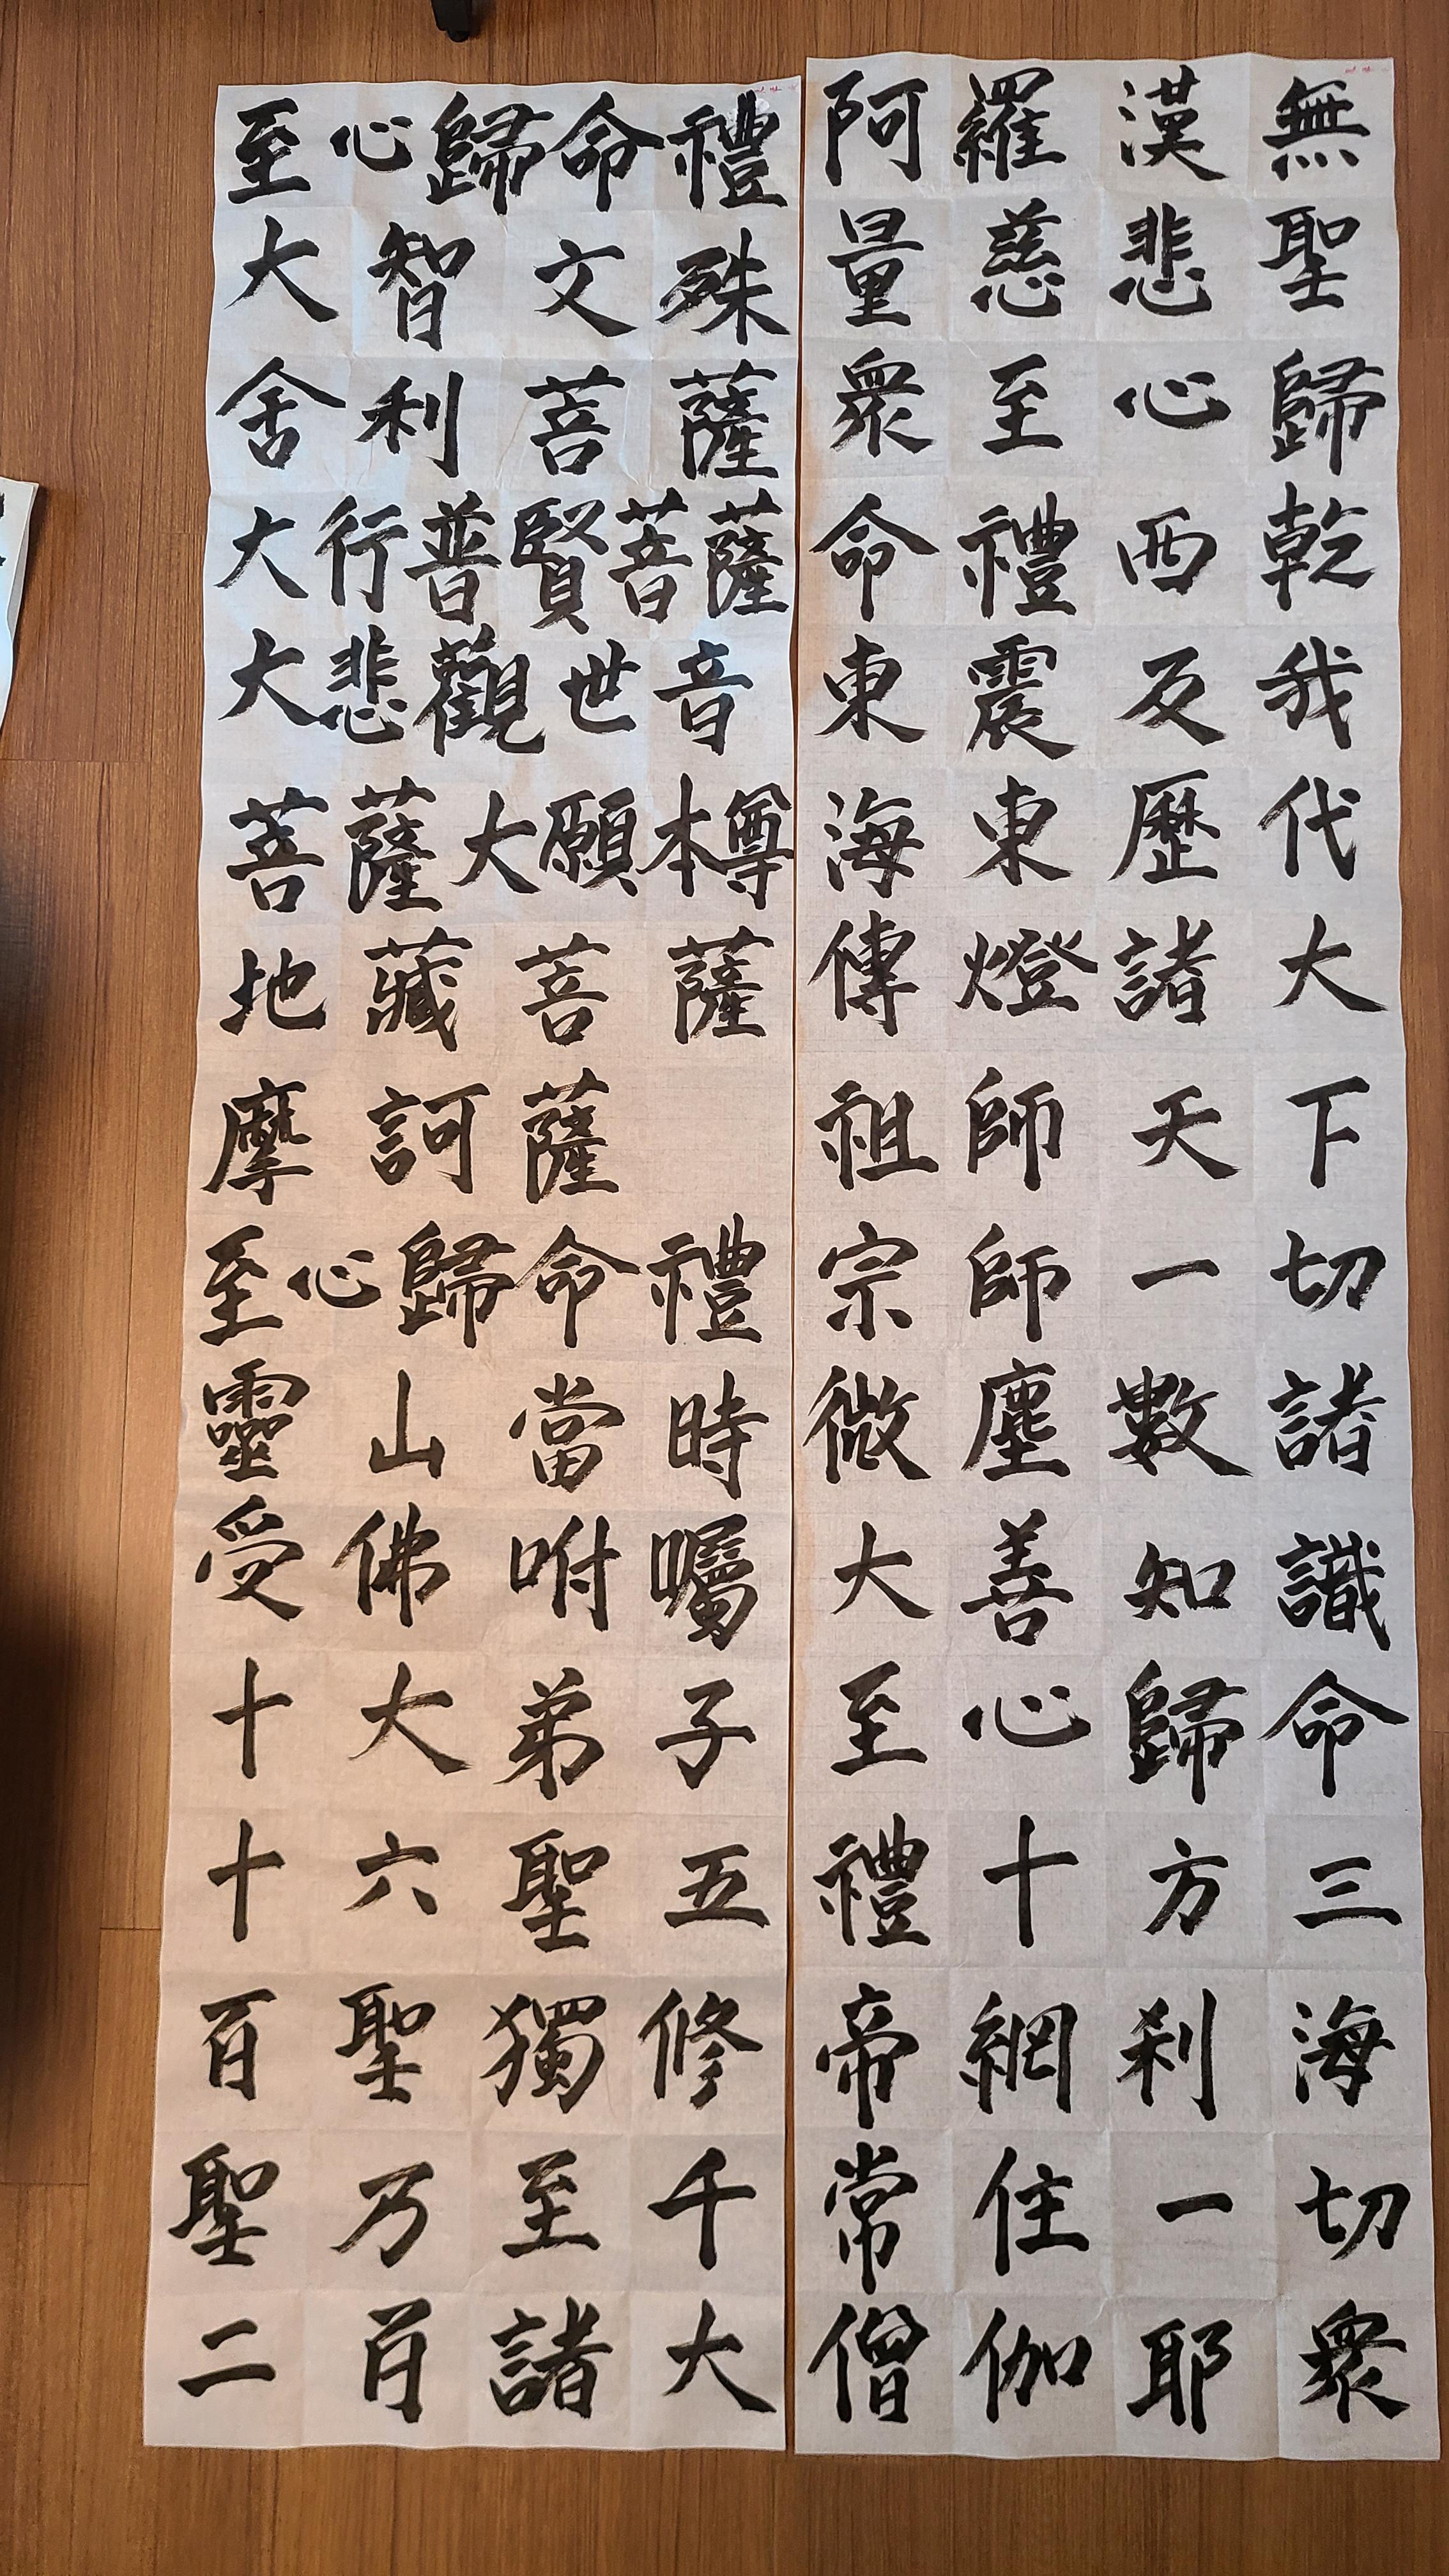 至心歸命禮
大智文殊
舍利菩薩
大行普賢菩薩
大悲觀世音
菩薩大願本尊
地藏菩薩
摩訶薩
至心歸命禮
靈山當時
受佛咐囑
十大弟子
十六聖五
百聖獨修
聖乃至千
二百諸大
阿羅漢無
量慈悲聖
衆至心歸
命禮西乾
東震及我
海東歷代
傳燈諸大
祖師天下
宗師一切
微塵數諸
大善知識
至心歸命
禮十方三
帝網刹海
常住一切
僧伽耶衆